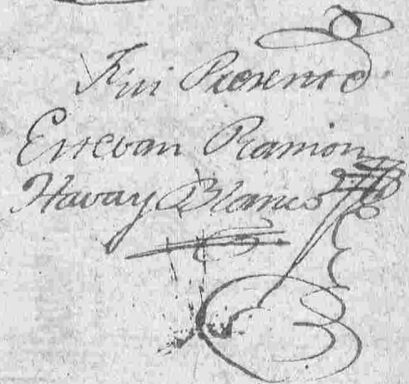 Fui Presente
Estevan Ramon
Havay Blanco